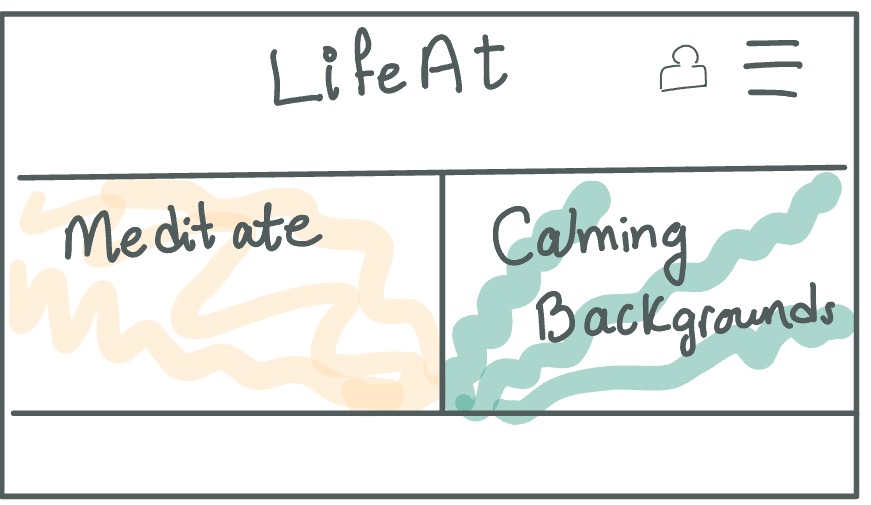 LifeAt
Meditate
Calming
Backgrounds